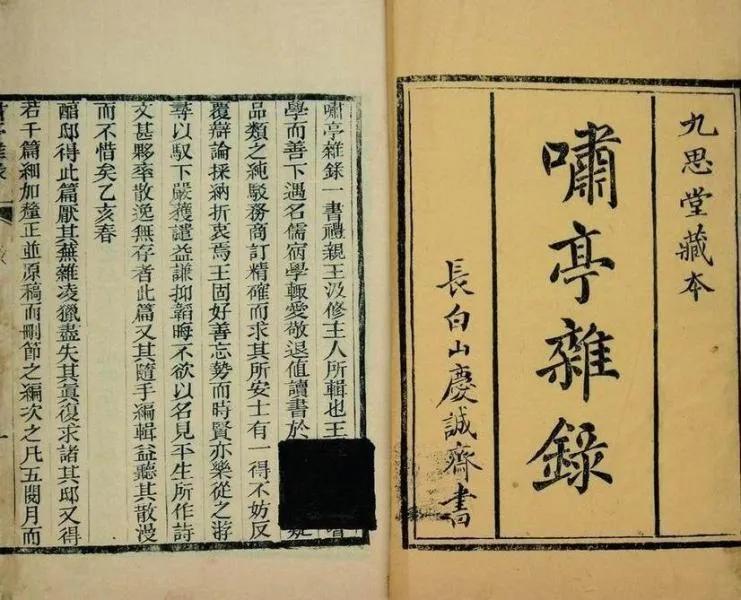 九思堂藏本
嘯亭雜錄
長白山慶誠齋書
嘯亭雜錄一書禮親王汲修主人所輯也王
學而善下遇名儒宿學輒愛敬退值讀書於
品類之純駁務商訂精確而求其所安士有一得不妨反
覆辯論採納折衷焉王固好善忘勢而時賢亦樂從之游
尋以馭下嚴獲譴益謙抑韜晦不欲以名見平生所作詩
文甚夥率散逸無存者此篇又其隨手編輯益聽其散漫
而不惜矣乙亥春
醕邸得此篇厭其蕪雜凌獵盡失其真復求諸其邸又得
若干篇細加釐正並原稿而刪節之編次之凡五閱月而